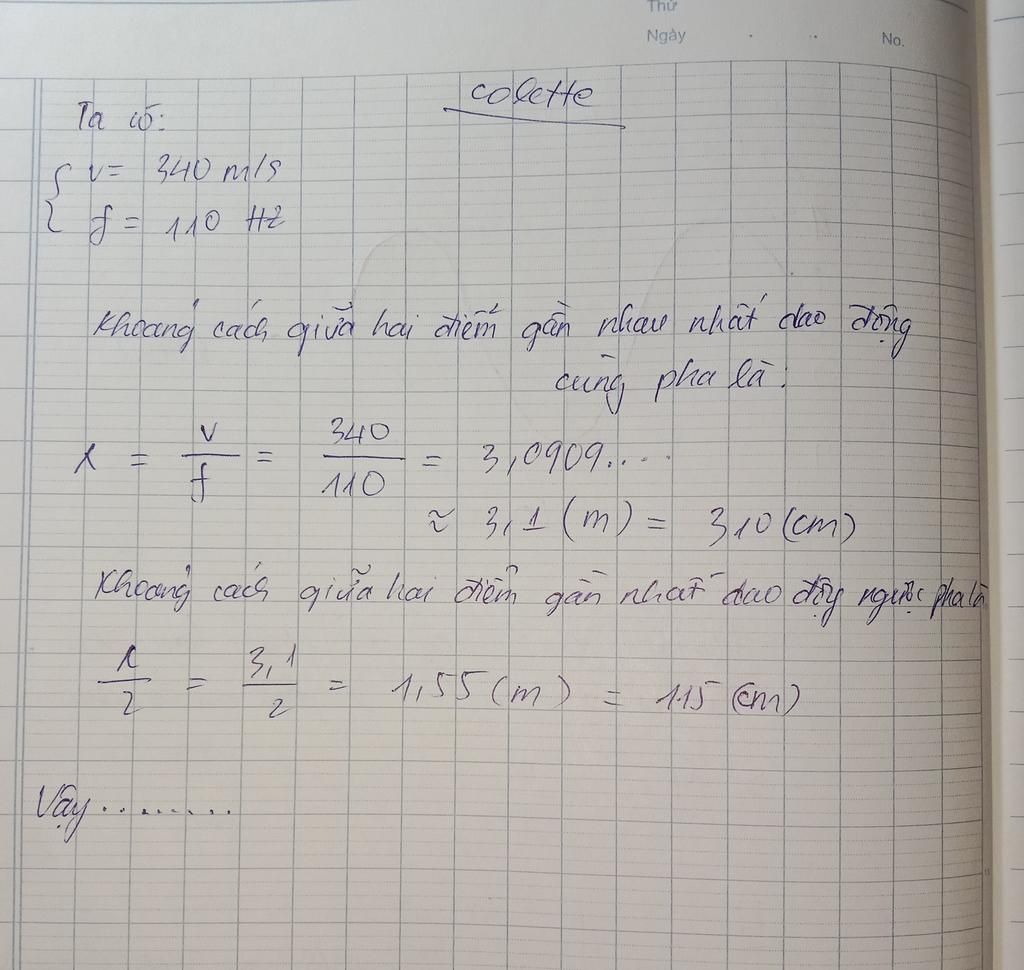 Thứ
Ngày . .. No.
colette
Ta có:
{ v = 340 m/s
f = 110 Hz
Khoảng cách giữa hai điểm gần nhau nhất dao động
cùng pha là:
λ = v/f = 340/110 = 3,0909....
≈ 3,1 (m) = 310 (cm)
Khoảng cách giữa hai điểm gần nhất dao động ngược pha là
λ/2 = 3,1/2 = 1,55 (m) = 115 (cm)
Vậy.........